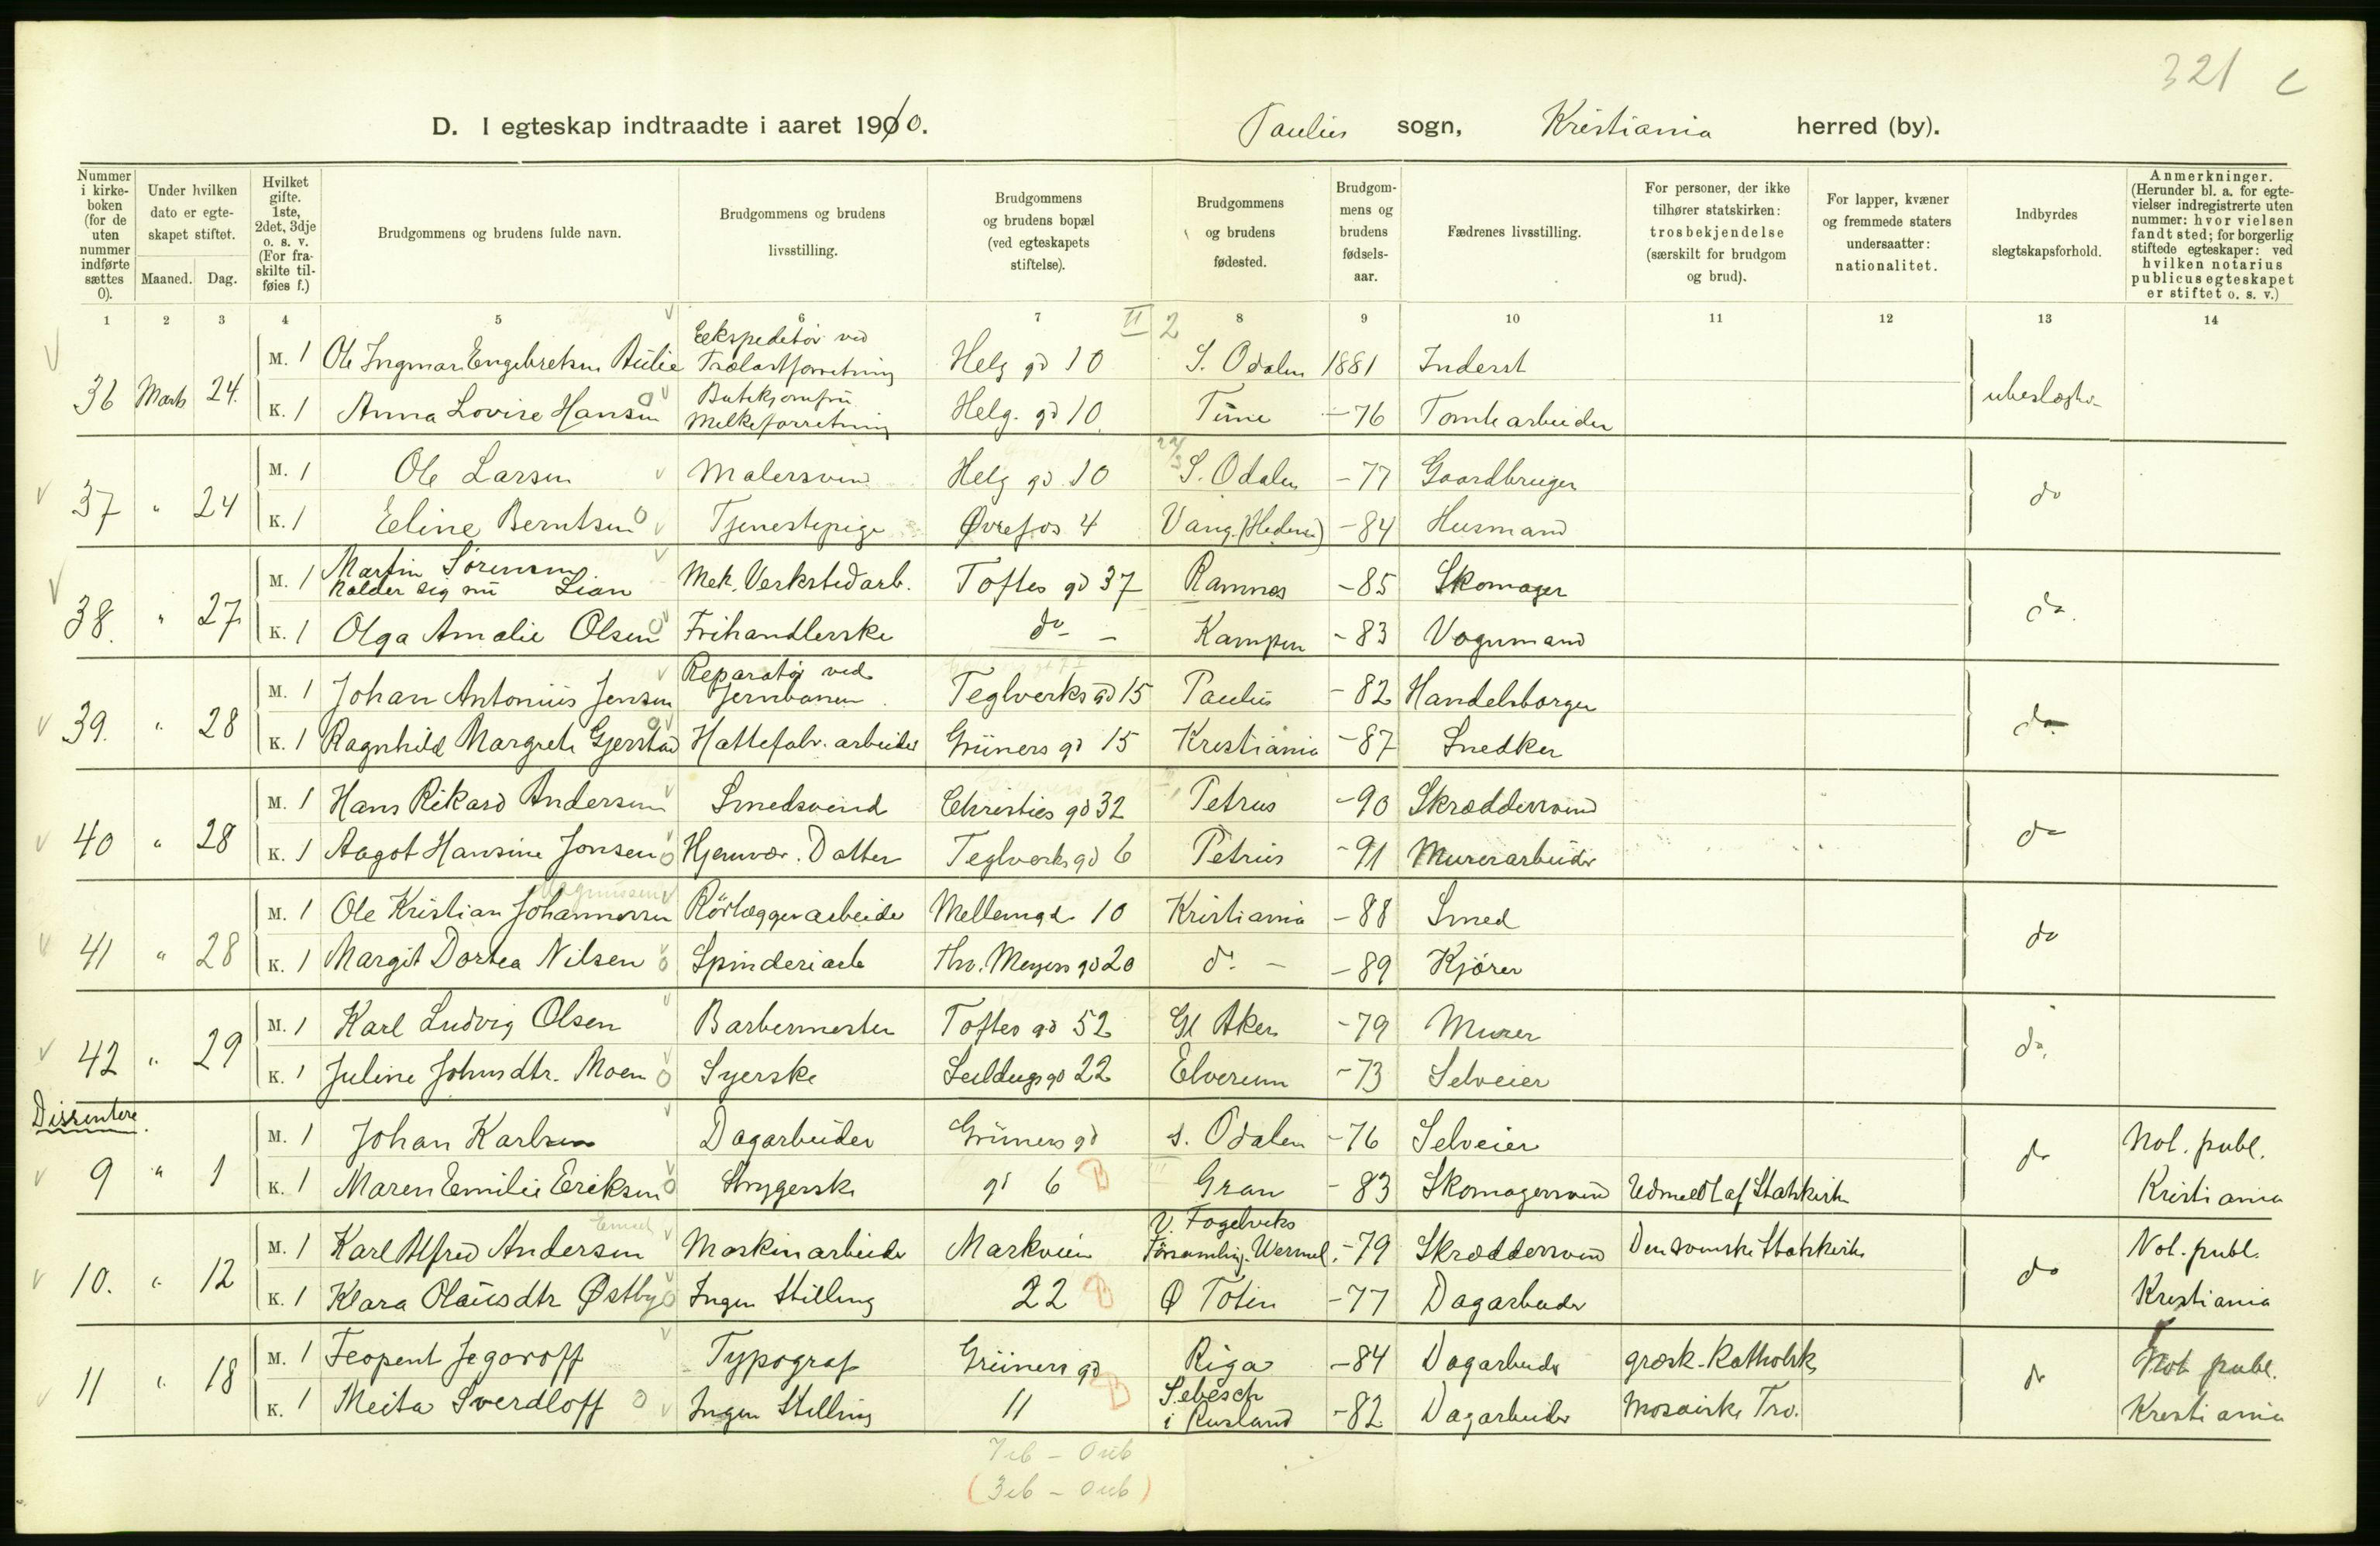 321 c
D. I egteskap indtraadte i aaret 1910.
Paulus sogn, Kristiania herred (by).
Nummer i kirkeboken (for de uten nummer indførte sættes 0).
Under hvilken dato er egteskapet stiftet.
Maaned. Dag.
Hvilket gifte. 1ste, 2det, 3dje o. s. v. (For fraskilte tilføies f.)
Brudgommens og brudens fulde navn.
Brudgommens og brudens livsstilling.
Brudgommens og brudens bopæl (ved egteskapets stiftelse).
Brudgommens og brudens fødested.
Brudgommens og brudens fødselsaar.
Fædrenes livsstilling.
For personer, der ikke tilhører statskirken: trosbekjendelse (særskilt for brudgom og brud).
For lapper, kvæner og fremmede staters undersaatter: nationalitet.
Indbyrdes slegtskapsforhold.
Anmerkninger. (Herunder bl. a. for egtevielser indregistrerte uten nummer: hvor vielsen fandt sted; for borgerlig stiftede egteskaper: ved hvilken notarius publicus egteskapet er stiftet o. s. v.)
1 2 3 4 5 6 7 8 9 10 11 12 13 14
II 2
36 Marts 24. M. 1 Ole Ingmar Engebretsen Aulie Ekspeditør ved Trælastforretning Helg. gd 10 S. Odalen 1881 Inderst ubeslægt.
K. 1 Anna Lovise Hansen Butikjomfru Melkeforretning Helg. gd 10 Time -76 Tomtearbeider
37 " 24 M. 1 Ole Larsen Malersvend Helg gd 10 S. Odalen -77 Gaardbruger do
K. 1 Eline Berntsen Tjenestepige Øvrefos 4 Vang (Hedem) -84 Husmand
38. " 27 M. 1 Martin Sørensen kalder sig nu Lian Mek. Verkstedarb. Toftes gd 37 Ramnes -85 Skomager do.
K. 1 Olga Amalie Olsen Frihandlerske do - Kampen -83 Vognmand
39. " 28 M. 1 Johan Antonius Jensen Reparatør ved Jernbanen Teglverks gd 15 Paulus -82 Handelsborger do
K. 1 Ragnhild Margrete Gjerstad Hattefabr. arbeider Grüners gd 15 Kristiania -87 Snedker
40 " 28 M. 1 Hans Rikard Andersen Smedsvend Christies gd 32 Petrus -90 Skræddersvend do
K. 1 Aagot Hansine Jonsen Hjemvær. Datter Teglverks gd 6 Petrus -91 Murerarbeider
Magnussen
41 " 28 M. 1 Ole Kristian Johannessen Rørlæggerarbeider Mellemgd. 10 Kristiania -88 Smed do
K. 1 Margit Dortea Nilsen Spinderiarb Thv. Meyers gd 20 do - -89 Kjører
42 " 29 M. 1 Karl Ludvig Olsen Barbermester Toftes gd 52 Gl Aker -79 Murer do.
K. 1 Juline Johnsdtr. Moen Syerske Seildugs gd 22 Elverum -73 Selveier
Dissentere.
9 " 1 M. 1 Johan Karlsen Dagarbeider Grüners gd S. Odalen -76 Selveier do Not. publ.
K. 1 Maren Emilie Eriksen Strygerske gd 6 Gran -83 Skomagersvend Udmeldt af Statskirke Kristiania
10. " 12 M. 1 Karl Alfred Andersen Maskinarbeider Markveien V. Fogelviks Församling. Wermel. -79 Skræddersvend Den svenske Statskirke do Not. publ.
K. 1 Klara Olausdtr Østby Ingen Stilling 22 Ø Toten -77 Dagarbeider Kristiania
11 " 18 M. 1 Feopent Jegoroff Typograf Grüners gd Riga -84 Dagarbeider græsk-Katholsk do Not publ.
K. 1 Meita Sverdloff Ingen Stilling 11 Sebesch i Rusland -82 Dagarbeider Mosaiske Tro. Kristiania